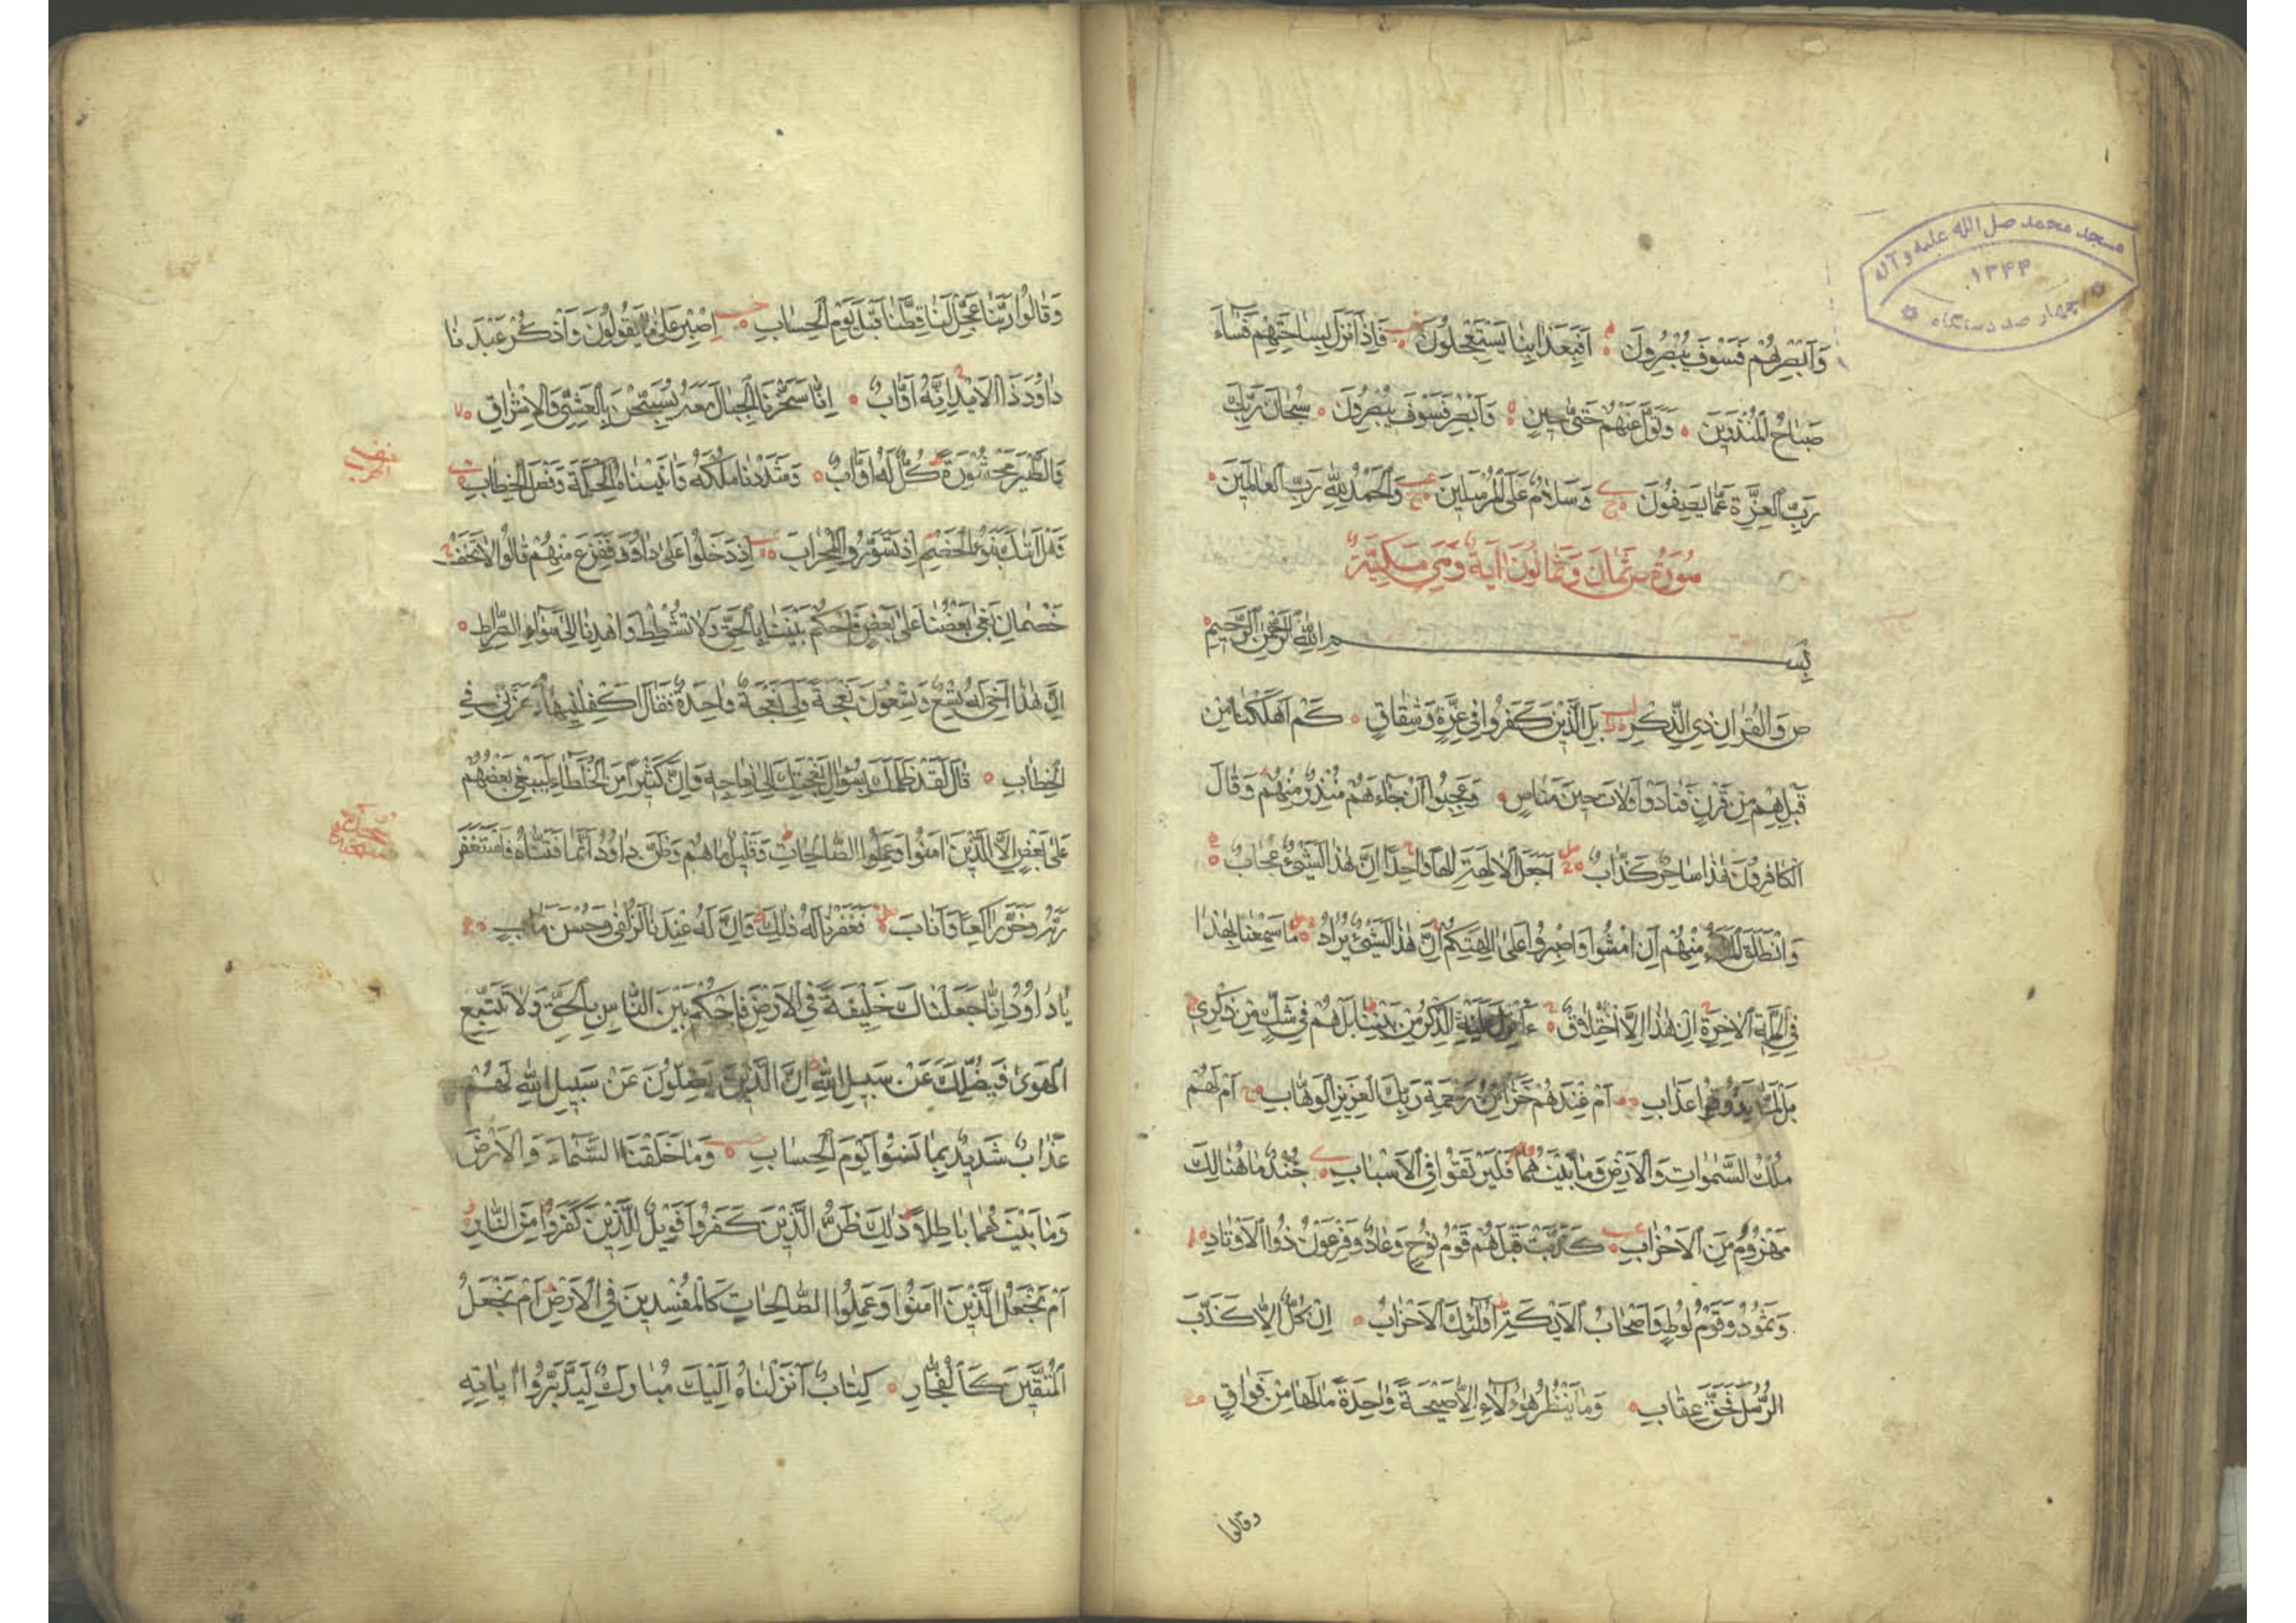 مسجد محمد صل الله علیه و آله
۱۳۴۴
چهار صد دستگاه
وَأَبْصِرْهُمْ فَسَوْفَ يُبْصِرُونَ أَفَبِعَذَابِنَا يَسْتَعْجِلُونَ فَإِذَا نَزَلَ بِسَاحَتِهِمْ فَسَاءَ
صَبَاحُ الْمُنْذَرِينَ وَتَوَلَّ عَنْهُمْ حَتَّى حِينٍ وَأَبْصِرْ فَسَوْفَ يُبْصِرُونَ سُبْحَانَ رَبِّكَ
رَبِّ الْعِزَّةِ عَمَّا يَصِفُونَ وَسَلَامٌ عَلَى الْمُرْسَلِينَ وَالْحَمْدُ لِلَّهِ رَبِّ الْعَالَمِينَ
سُورَةُ ص ثَمَانَ وَثَمَانُونَ آيَةً وَهِيَ مَكِّيَّةٌ
بِسْمِ اللَّهِ الرَّحْمَنِ الرَّحِيمِ
ص وَالْقُرْآنِ ذِي الذِّكْرِ بَلِ الَّذِينَ كَفَرُوا فِي عِزَّةٍ وَشِقَاقٍ كَمْ أَهْلَكْنَا مِنْ
قَبْلِهِمْ مِنْ قَرْنٍ فَنَادَوْا وَلَاتَ حِينَ مَنَاصٍ وَعَجِبُوا أَنْ جَاءَهُمْ مُنْذِرٌ مِنْهُمْ وَقَالَ
الْكَافِرُونَ هَذَا سَاحِرٌ كَذَّابٌ أَجَعَلَ الْآلِهَةَ إِلَهًا وَاحِدًا إِنَّ هَذَا لَشَيْءٌ عُجَابٌ
وَانْطَلَقَ الْمَلَأُ مِنْهُمْ أَنِ امْشُوا وَاصْبِرُوا عَلَى آلِهَتِكُمْ إِنَّ هَذَا لَشَيْءٌ يُرَادُ مَا سَمِعْنَا بِهَذَا
فِي الْمِلَّةِ الْآخِرَةِ إِنْ هَذَا إِلَّا اخْتِلَاقٌ ءَأُنْزِلَ عَلَيْهِ الذِّكْرُ مِنْ بَيْنِنَا بَلْ هُمْ فِي شَكٍّ مِنْ ذِكْرِي
بَلْ لَمَّا يَذُوقُوا عَذَابِ أَمْ عِنْدَهُمْ خَزَائِنُ رَحْمَةِ رَبِّكَ الْعَزِيزِ الْوَهَّابِ أَمْ لَهُمْ
مُلْكُ السَّمَوَاتِ وَالْأَرْضِ وَمَا بَيْنَهُمَا فَلْيَرْتَقُوا فِي الْأَسْبَابِ جُنْدٌ مَا هُنَالِكَ
مَهْزُومٌ مِنَ الْأَحْزَابِ كَذَّبَتْ قَبْلَهُمْ قَوْمُ نُوحٍ وَعَادٌ وَفِرْعَوْنُ ذُو الْأَوْتَادِ
وَثَمُودُ وَقَوْمُ لُوطٍ وَأَصْحَابُ الْأَيْكَةِ أُولَئِكَ الْأَحْزَابُ إِنْ كُلٌّ إِلَّا كَذَّبَ
الرُّسُلَ فَحَقَّ عِقَابِ وَمَا يَنْظُرُ هَؤُلَاءِ إِلَّا صَيْحَةً وَاحِدَةً مَا لَهَا مِنْ فَوَاقٍ
وقالوا
وَقَالُوا رَبَّنَا عَجِّلْ لَنَا قِطَّنَا قَبْلَ يَوْمِ الْحِسَابِ اصْبِرْ عَلَى مَا يَقُولُونَ وَاذْكُرْ عَبْدَنَا
دَاوُدَ ذَا الْأَيْدِ إِنَّهُ أَوَّابٌ إِنَّا سَخَّرْنَا الْجِبَالَ مَعَهُ يُسَبِّحْنَ بِالْعَشِيِّ وَالْإِشْرَاقِ
وَالطَّيْرَ مَحْشُورَةً كُلٌّ لَهُ أَوَّابٌ وَشَدَدْنَا مُلْكَهُ وَآتَيْنَاهُ الْحِكْمَةَ وَفَصْلَ الْخِطَابِ
وَهَلْ أَتَاكَ نَبَؤُا الْخَصْمِ إِذْ تَسَوَّرُوا الْمِحْرَابَ إِذْ دَخَلُوا عَلَى دَاوُدَ فَفَزِعَ مِنْهُمْ قَالُوا لَا تَخَفْ
خَصْمَانِ بَغَى بَعْضُنَا عَلَى بَعْضٍ فَاحْكُمْ بَيْنَنَا بِالْحَقِّ وَلَا تُشْطِطْ وَاهْدِنَا إِلَى سَوَاءِ الصِّرَاطِ
إِنَّ هَذَا أَخِي لَهُ تِسْعٌ وَتِسْعُونَ نَعْجَةً وَلِيَ نَعْجَةٌ وَاحِدَةٌ فَقَالَ أَكْفِلْنِيهَا وَعَزَّنِي فِي
الْخِطَابِ قَالَ لَقَدْ ظَلَمَكَ بِسُؤَالِ نَعْجَتِكَ إِلَى نِعَاجِهِ وَإِنَّ كَثِيرًا مِنَ الْخُلَطَاءِ لَيَبْغِي بَعْضُهُمْ
عَلَى بَعْضٍ إِلَّا الَّذِينَ آمَنُوا وَعَمِلُوا الصَّالِحَاتِ وَقَلِيلٌ مَا هُمْ وَظَنَّ دَاوُدُ أَنَّمَا فَتَنَّاهُ فَاسْتَغْفَرَ
رَبَّهُ وَخَرَّ رَاكِعًا وَأَنَابَ فَغَفَرْنَا لَهُ ذَلِكَ وَإِنَّ لَهُ عِنْدَنَا لَزُلْفَى وَحُسْنَ مَآبٍ
يَا دَاوُدُ إِنَّا جَعَلْنَاكَ خَلِيفَةً فِي الْأَرْضِ فَاحْكُمْ بَيْنَ النَّاسِ بِالْحَقِّ وَلَا تَتَّبِعِ
الْهَوَى فَيُضِلَّكَ عَنْ سَبِيلِ اللَّهِ إِنَّ الَّذِينَ يَضِلُّونَ عَنْ سَبِيلِ اللَّهِ لَهُمْ
عَذَابٌ شَدِيدٌ بِمَا نَسُوا يَوْمَ الْحِسَابِ وَمَا خَلَقْنَا السَّمَاءَ وَالْأَرْضَ
وَمَا بَيْنَهُمَا بَاطِلًا ذَلِكَ ظَنُّ الَّذِينَ كَفَرُوا فَوَيْلٌ لِلَّذِينَ كَفَرُوا مِنَ النَّارِ
أَمْ نَجْعَلُ الَّذِينَ آمَنُوا وَعَمِلُوا الصَّالِحَاتِ كَالْمُفْسِدِينَ فِي الْأَرْضِ أَمْ نَجْعَلُ
الْمُتَّقِينَ كَالْفُجَّارِ كِتَابٌ أَنْزَلْنَاهُ إِلَيْكَ مُبَارَكٌ لِيَدَّبَّرُوا آيَاتِهِ